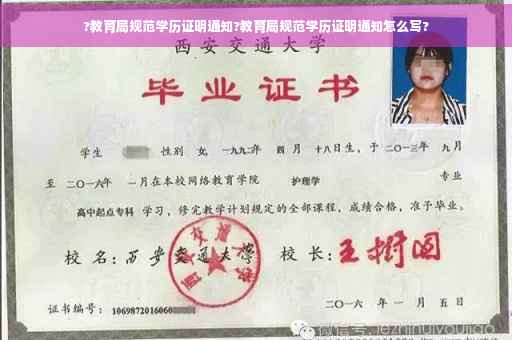 ?教育局规范学历证明通知?教育局规范学历证明通知怎么写?
西安交通大学
毕业证书
学生 性别 女, 一九九二年 四月 十八日生, 于二〇一三年 九月
至 二〇一六年 一月在本校网络教育学院 护理学 专业
高中起点专科 学习, 修完教学计划规定的全部课程, 成绩合格, 准予毕业。
校 名: 西安交通大学 校 长: 王树国
西安交通大学
证书编号: 1069872016060
二〇一六 年 一 月 五 日
微信号: jezhinuiyoujiao